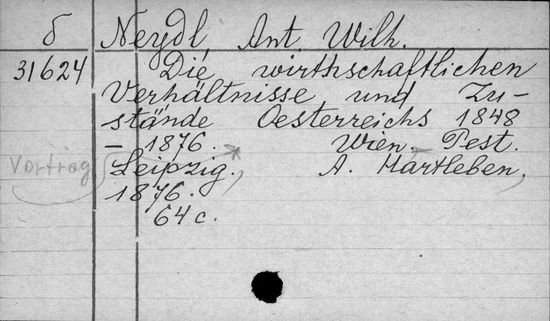 б Neydl, Ant. Wilh.
31624 Die wirthschaftlichen
Verhältnisse und Zu-
stände Oesterreichs 1848
- 1876. Wien. Pest.
Vortrag Leipzig. A. Hartleben.
1876.
64 c.